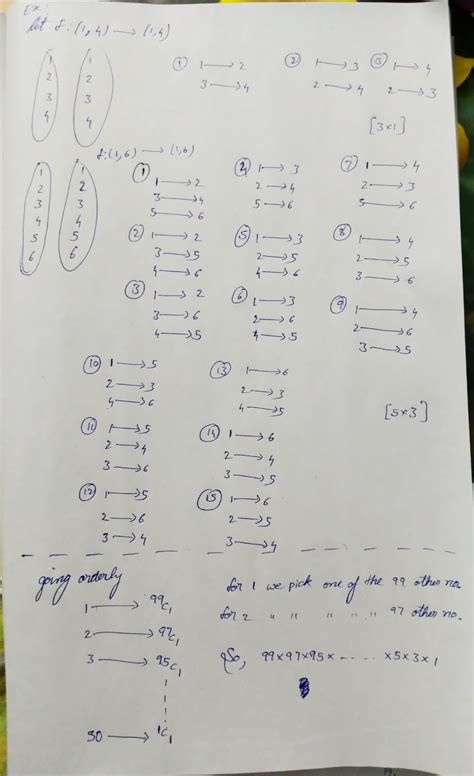 Ex
let f: (1,4) → (1,4)
1 2 3 4
1 2 3 4
① 1 → 2
3 → 4
② 1 → 3
2 → 4
③ 1 → 4
2 → 3
[3×1]
f: (1,6) → (1,6)
1 2 3 4 5 6
1 2 3 4 5 6
① 1 → 2
3 → 4
5 → 6
② 1 → 2
3 → 5
4 → 6
③ 1 → 2
3 → 6
4 → 5
④ 1 → 3
2 → 4
5 → 6
⑤ 1 → 3
2 → 5
4 → 6
⑥ 1 → 3
2 → 6
4 → 5
⑦ 1 → 4
2 → 3
5 → 6
⑧ 1 → 4
2 → 5
3 → 6
⑨ 1 → 4
2 → 6
3 → 5
⑩ 1 → 5
2 → 3
4 → 6
⑪ 1 → 5
2 → 4
3 → 6
⑫ 1 → 5
2 → 6
3 → 4
⑬ 1 → 6
2 → 3
4 → 5
⑭ 1 → 6
2 → 4
3 → 5
⑮ 1 → 6
2 → 5
3 → 4
[5×3]
going orderly
1 → ⁹⁹C₁
2 → ⁹⁷C₁
3 → ⁹⁵C₁
50 → ¹C₁
for 1 we pick one of the 99 other no.
for 2 " " " " " 97 other no.
So, 99×97×95× ...... ×5×3×1